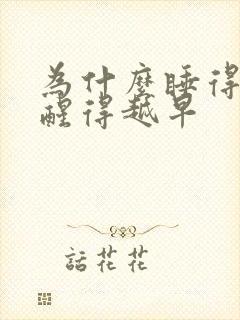 為什麼睡得
醒得越早
話花花